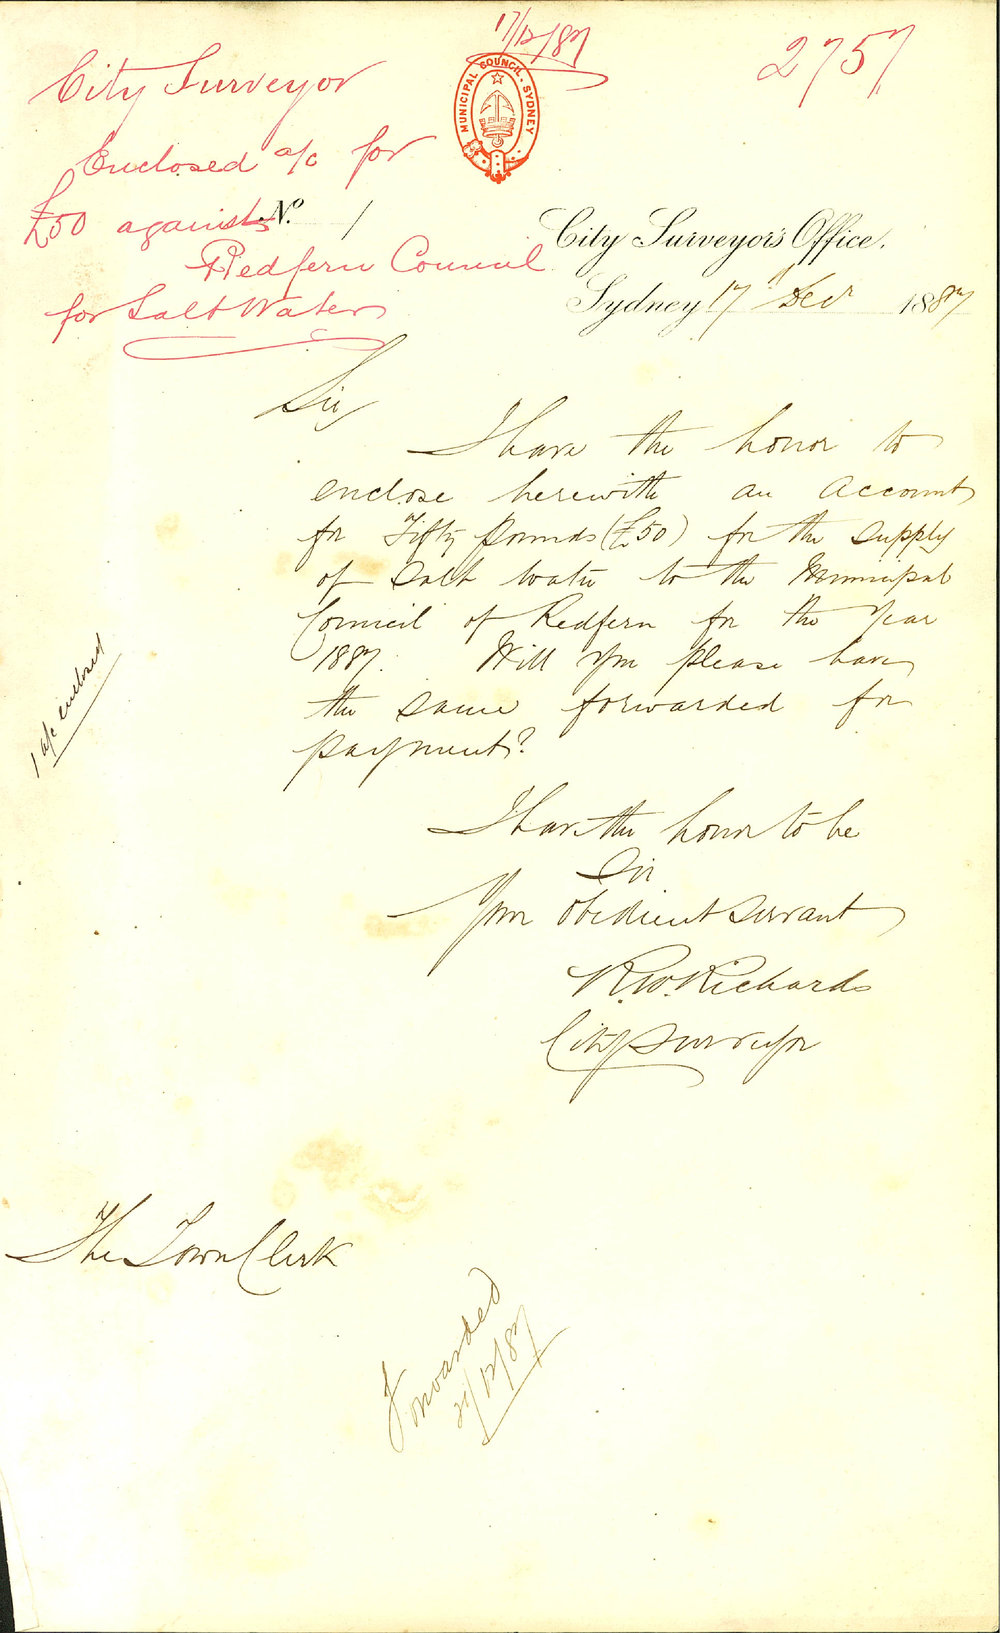 17/12/87
2757
City Surveyor
Enclosed a/c for
£50 against
Redfern Council
for Salt Water
MUNICIPAL COUNCIL · SYDNEY
No. 1
City Surveyor's Office,
Sydney 17th Decr 1887
Sir
I have the honor to
enclose herewith an Account
for Fifty Pounds (£50) for the supply
of Salt Water to the Municipal
Council of Redfern for the Year
1887. Will you please have
the same forwarded for
payment?
I have the honor to be
Sir
Your obedient servant
R.W. Richards
City Surveyor
1 a/c enclosed
The Town Clerk
Forwarded
21/12/87